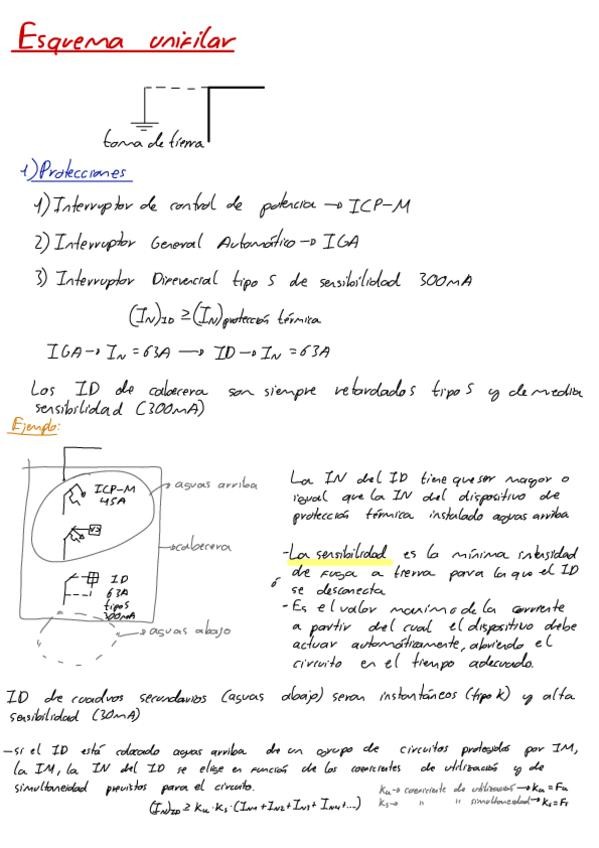 Esquema unifilar
toma de tierra
1) Protecciones
1) Interruptor de control de potencia → ICP-M
2) Interruptor General Automático → IGA
3) Interruptor Diferencial tipo S de sensibilidad 300mA
(IN)ID ≥ (IN) protección térmica
IGA → IN = 63A → ID → IN = 63A
Los ID de cabecera son siempre retardados tipo S y de media
sensibilidad (300mA)
Ejemplo:
ICP-M
45A
→ aguas arriba
→ cabecera
ID
63A
tipo S
300mA
→ aguas abajo
La IN del ID tiene que ser mayor o
igual que la IN del dispositivo de
protección térmica instalado aguas arriba
- La sensibilidad es la mínima intensidad
de fuga a tierra para la que el ID
se desconecta
ó
- Es el valor maximo de la corriente
a partir del cual el dispositivo debe
actuar automáticamente, abriendo el
circuito en el tiempo adecuado.
ID de cuadros secundarios (aguas abajo) seran instantáneos (tipo k) y alta
sensibilidad (30mA)
- Si el ID está colocado aguas arriba de un grupo de circuitos protegidos por IM,
la IM, la IN del ID se elige en función de los coeficientes de utilización y de
simultaneidad previstos para el circuito.
(IN)ID ≥ ku · ks · (IN1 + IN2 + IN3 + IN4 + ...)
ku → coeficiente de utilización → ku = Fu
ks → " " simultaneidad →